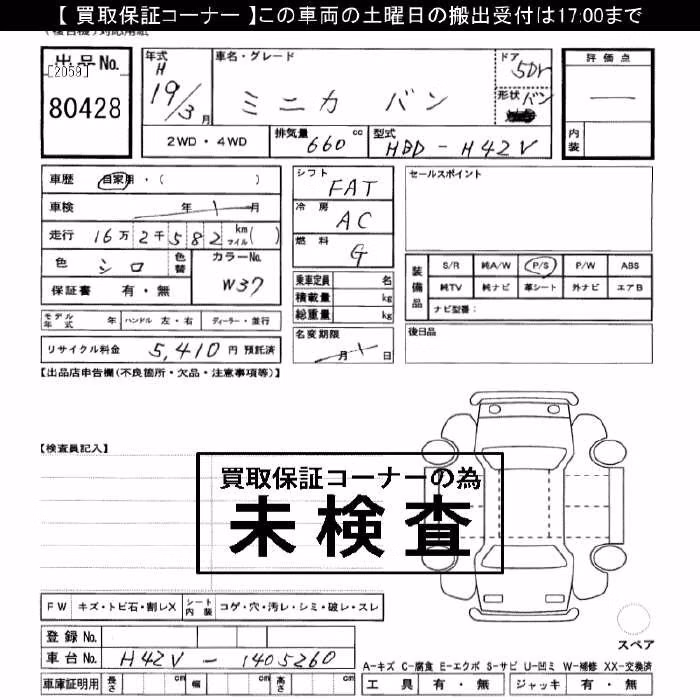 【 買取保証コーナー 】この車両の土曜日の搬出受付は17:00まで
出品No.
[2059]
80428
年式
H
19/3月
車名・グレード
ミニカ バン
ドア
5Dr
形状 バン
評価点
—
内装
2WD・4WD
排気量 660 cc
型式 HBD-H42V
車歴 自家用・( )
車検 年 月
走行 16万2千582 km マイル( )
色 シロ
色替
カラーNo. W37
保証書 有・無
モデル年式 年 ハンドル 左・右 ディーラー・並行
リサイクル料金 5,410 円 預託済
シフト FAT
冷房 AC
燃料 G
乗車定員 名
積載量 kg
総重量 kg
名変期限
月 日
セールスポイント
装備品
S/R 純A/W P/S P/W ABS
純TV 純ナビ 革シート 外ナビ エアB
ナビ型番:
後日品
【出品店申告欄(不良箇所・欠品・注意事項等)】
【検査員記入】
買取保証コーナーの為
未検査
FW キズ・トビ石・割レX シート内装 コゲ・穴・汚レ・シミ・破レ・スレ
登録No.
車台No. H42V-1405260
車庫証明用 長さ cm 幅 cm 高さ cm
スペア
A-キズ C-腐食 E-エクボ S-サビ U-凹ミ W-補修 XX-交換済
工具 有・無 ジャッキ 有・無